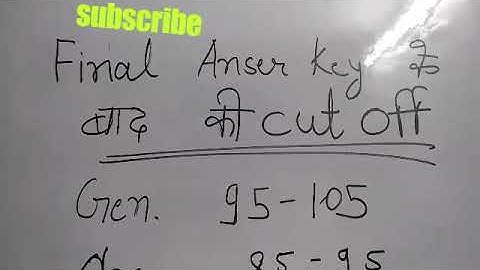 subscribe
Final Anser key के
बाद की cut off
Gen. 95-105
85-95